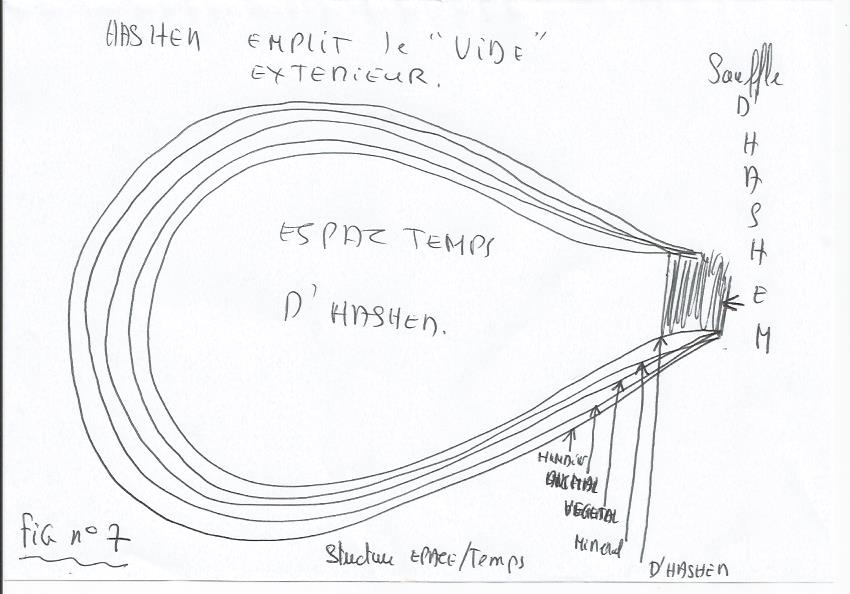 HASHEM EMPLIT le "VIDE"
EXTERIEUR.
Souffle
D'
H
A
S
H
E
M
ESPAC TEMPS
D'HASHEM.
HUMAIN
ANIMAL
VEGETAL
Mineral
D'HASHEM
Structure EPACE/Temps
fiG n° 7